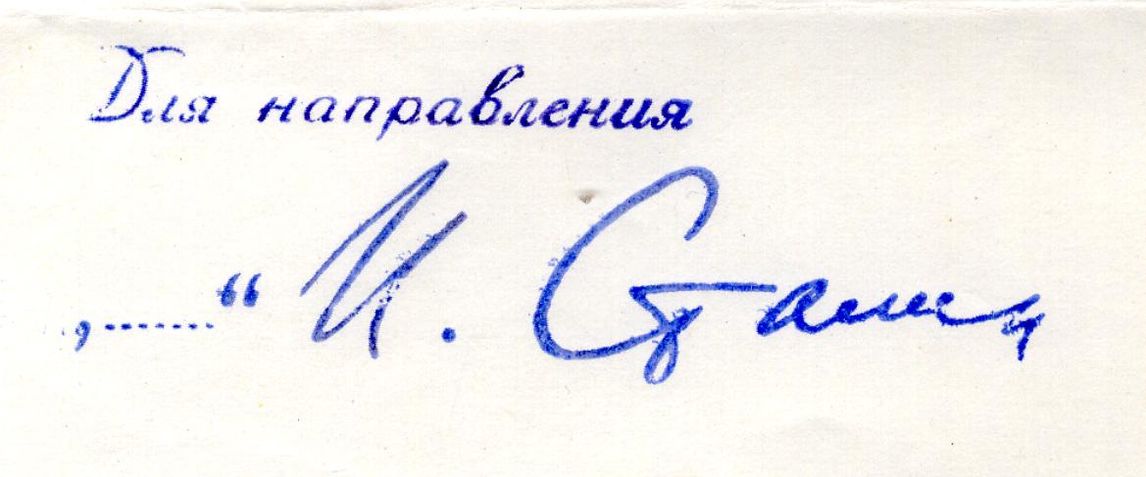 Для направления
„........“ И. Сталин